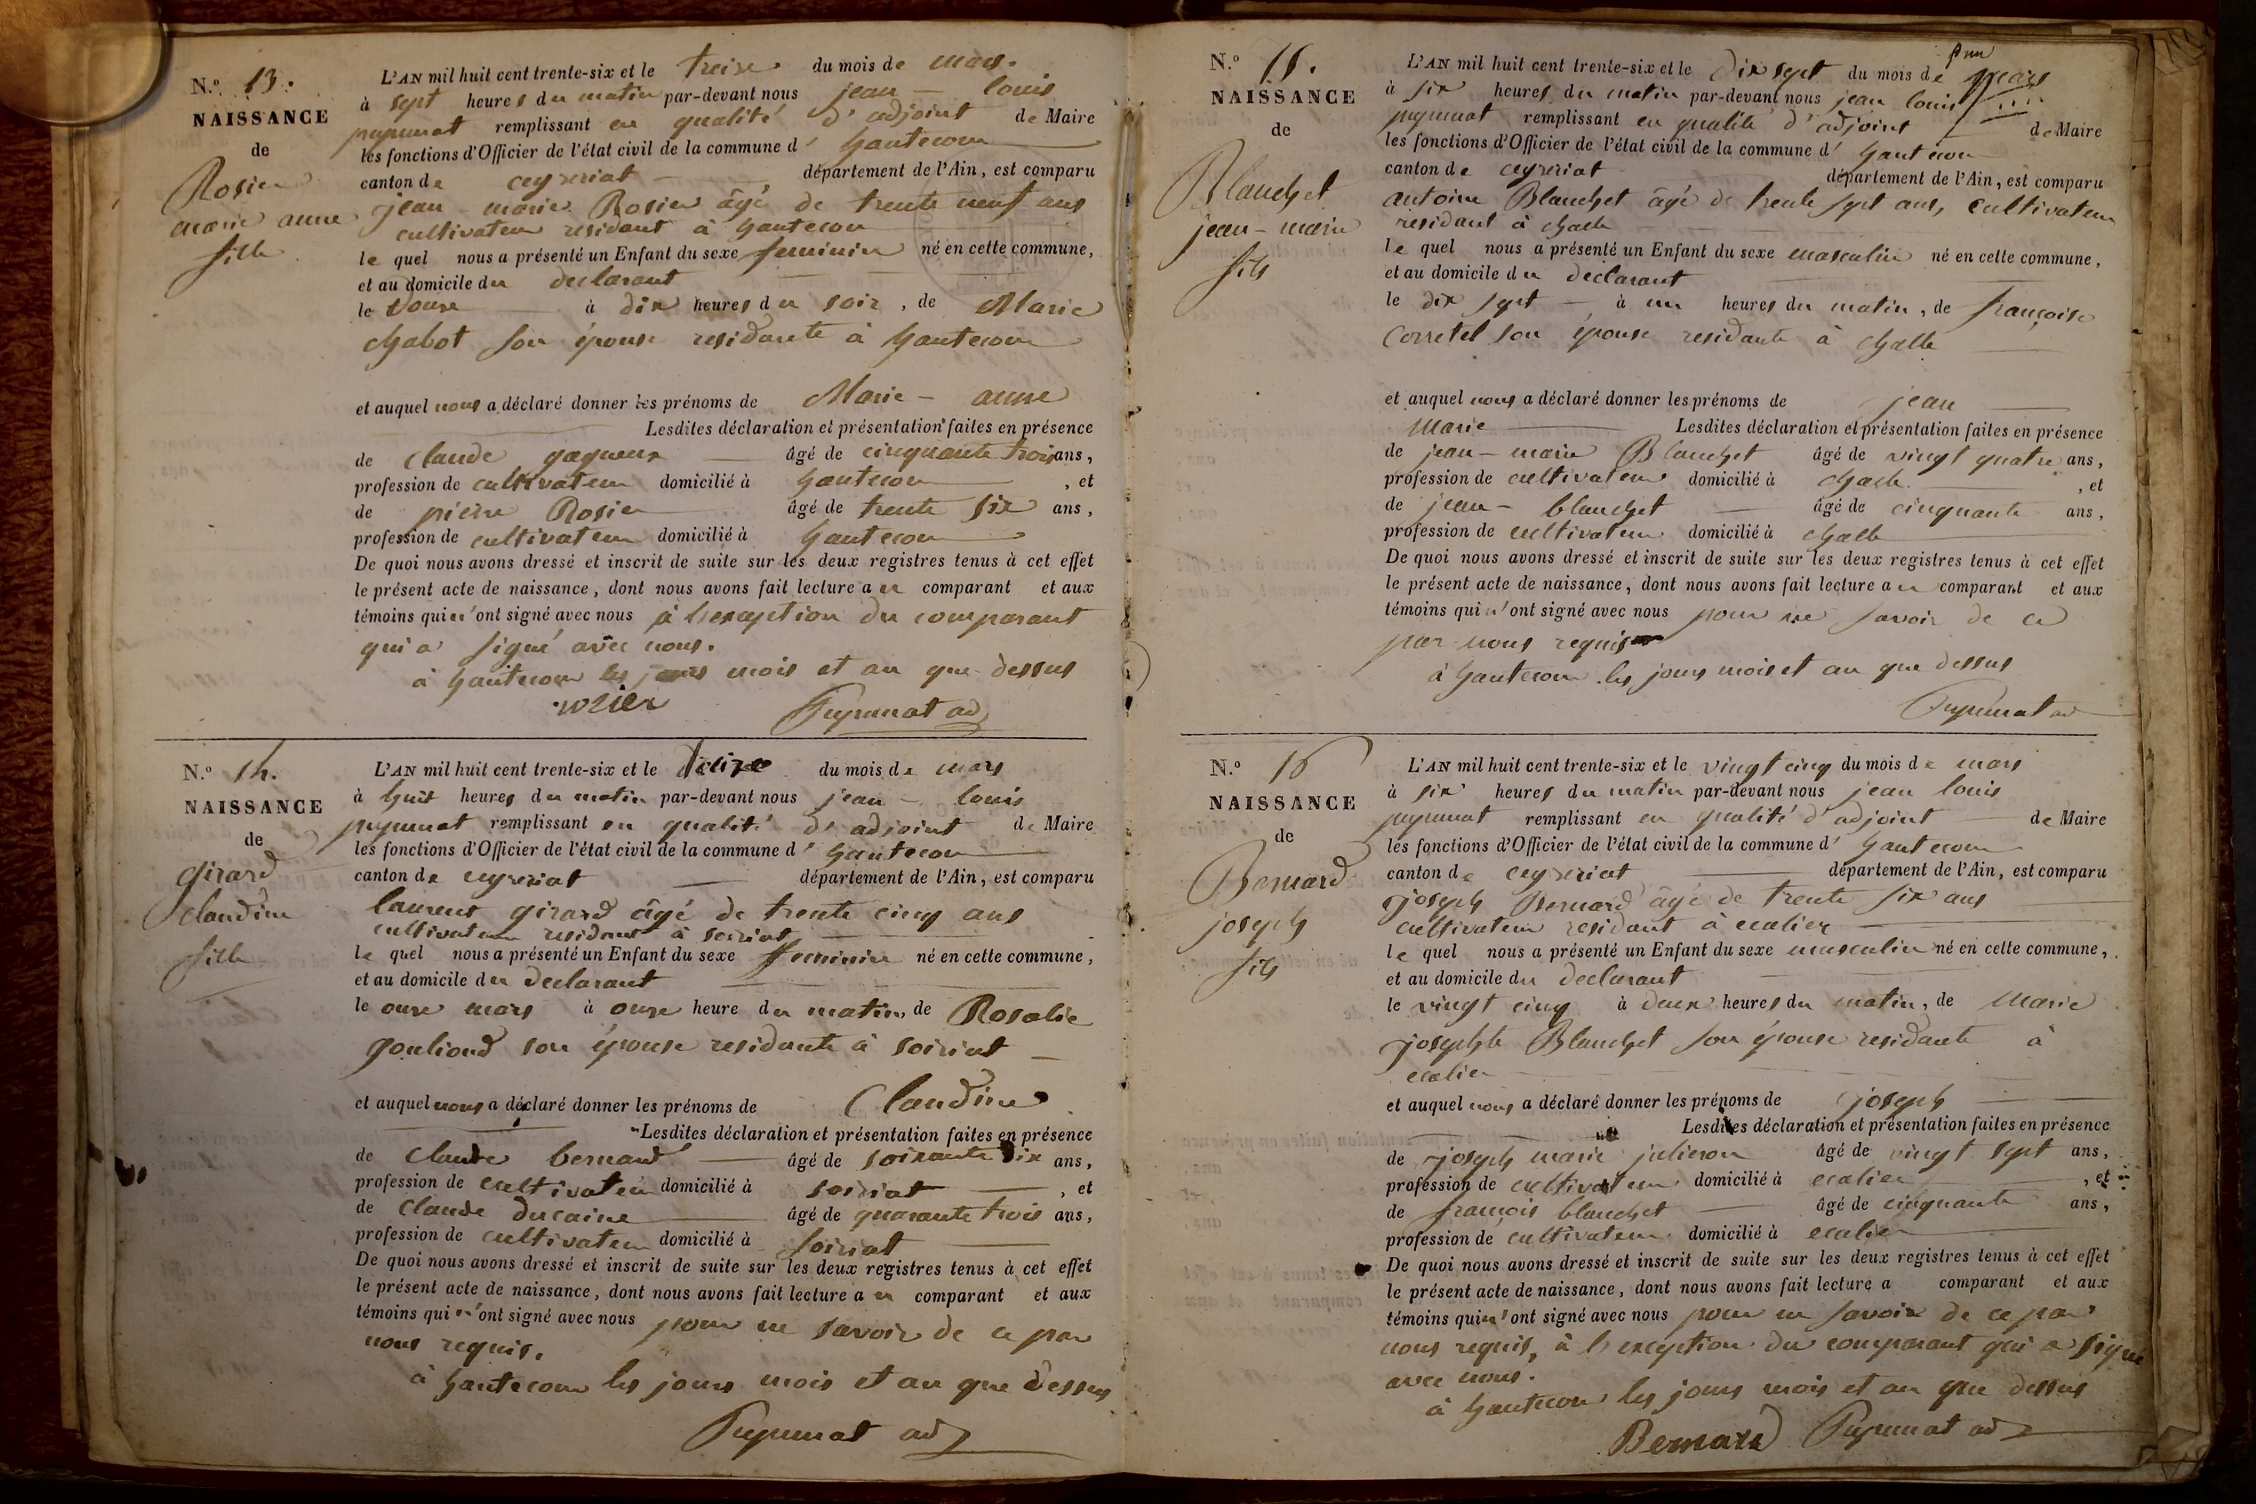 N.º 13.
NAISSANCE
de
Rosier
marie anne
fille
L'AN mil huit cent trente-six et le treize du mois de mars.
à sept heures du matin par-devant nous jean - louis
pupunat remplissant en qualité d'adjoint de Maire
les fonctions d'Officier de l'état civil de la commune d'hautecour
canton de ceyzeriat département de l'Ain, est comparu
jean - marie Rosier âgé de trente neuf ans
cultivateur residant à hautecour
le quel nous a présenté un Enfant du sexe feminin né en cette commune,
et au domicile du declarant
le douze à dix heures du soir, de Marie
chabot son épouse residante à hautecour
et auquel nous a déclaré donner les prénoms de Marie - anne
Lesdites déclaration et présentation faites en présence
de claude gagneux âgé de cinquante trois ans,
profession de cultivateur domicilié à hautecour, et
de pierre Rosier âgé de trente six ans,
profession de cultivateur domicilié à hautecour
De quoi nous avons dressé et inscrit de suite sur les deux registres tenus à cet effet
le présent acte de naissance, dont nous avons fait lecture au comparant et aux
témoins qui n'ont signé avec nous à l'exception du comparant
qui a signé avec nous.
à hautecour les jours mois et an que dessus
Pupunat ad
N.º 14.
NAISSANCE
de
girard
claudine
fille
L'AN mil huit cent trente-six et le treize du mois de mars
à huit heures du matin par-devant nous jean - louis
pupunat remplissant en qualité d'adjoint de Maire
les fonctions d'Officier de l'état civil de la commune d'hautecour
canton de ceyzeriat département de l'Ain, est comparu
laurent girard âgé de trente cinq ans
cultivateur residant à soiriat
le quel nous a présenté un Enfant du sexe feminin né en cette commune,
et au domicile du declarant
le onze mars à onze heure du matin, de Rosalie
gouliond son épouse residante à soiriat
et auquel nous a déclaré donner les prénoms de Claudine
Lesdites déclaration et présentation faites en présence
de claude bernard âgé de soixante six ans,
profession de cultivateur domicilié à soiriat, et
de claude ducaine âgé de quarante trois ans,
profession de cultivateur domicilié à soiriat
De quoi nous avons dressé et inscrit de suite sur les deux registres tenus à cet effet
le présent acte de naissance, dont nous avons fait lecture au comparant et aux
témoins qui n'ont signé avec nous pour ne savoir de ce par
nous requis.
à hautecour les jours mois et an que dessus
Pupunat ad
N.º 15.
NAISSANCE
de
Blanchet
jean - marie
fils
L'AN mil huit cent trente-six et le dix sept du mois de mars
à six heures du matin par-devant nous jean louis
pupunat remplissant en qualité d'adjoint de Maire
les fonctions d'Officier de l'état civil de la commune d'hautecour
canton de ceyzeriat département de l'Ain, est comparu
antoine Blanchet âgé de trente sept ans, cultivateur
residant à challe
le quel nous a présenté un Enfant du sexe masculin né en cette commune,
et au domicile du declarant
le dix sept à un heures du matin, de françoise
Corretel son épouse residante à challe
et auquel nous a déclaré donner les prénoms de jean
Marie Lesdites déclaration et présentation faites en présence
de jean - marie Blanchet âgé de vingt quatre ans,
profession de cultivateur domicilié à challe, et
de jean - blanchet âgé de cinquante ans,
profession de cultivateur domicilié à challe
De quoi nous avons dressé et inscrit de suite sur les deux registres tenus à cet effet
le présent acte de naissance, dont nous avons fait lecture au comparant et aux
témoins qui n'ont signé avec nous pour ne savoir de ce
par nous requis
à hautecour les jours mois et an que dessus
Pupunat ad
N.º 16
NAISSANCE
de
Bernard
joseph
fils
L'AN mil huit cent trente-six et le vingt cinq du mois de mars
à six heures du matin par-devant nous jean louis
pupunat remplissant en qualité d'adjoint de Maire
les fonctions d'Officier de l'état civil de la commune d'hautecour
canton de ceyzeriat département de l'Ain, est comparu
joseph Bernard âgé de trente six ans
cultivateur residant à cualier
le quel nous a présenté un Enfant du sexe masculin né en cette commune,
et au domicile du declarant
le vingt cinq à deux heures du matin, de Marie
josephte Blanchet son épouse residante à
cualier
et auquel nous a déclaré donner les prénoms de joseph
Lesdites déclaration et présentation faites en présence
de joseph marie julieron âgé de vingt sept ans,
profession de cultivateur domicilié à cualier, et
de françois blanchet âgé de cinquante ans,
profession de cultivateur domicilié à cualier
De quoi nous avons dressé et inscrit de suite sur les deux registres tenus à cet effet
le présent acte de naissance, dont nous avons fait lecture a comparant et aux
témoins qui n'ont signé avec nous pour ne savoir de ce par
nous requis, à l'exception du comparant qui a signé
avec nous.
à hautecour les jours mois et an que dessus
Bernard Pupunat ad